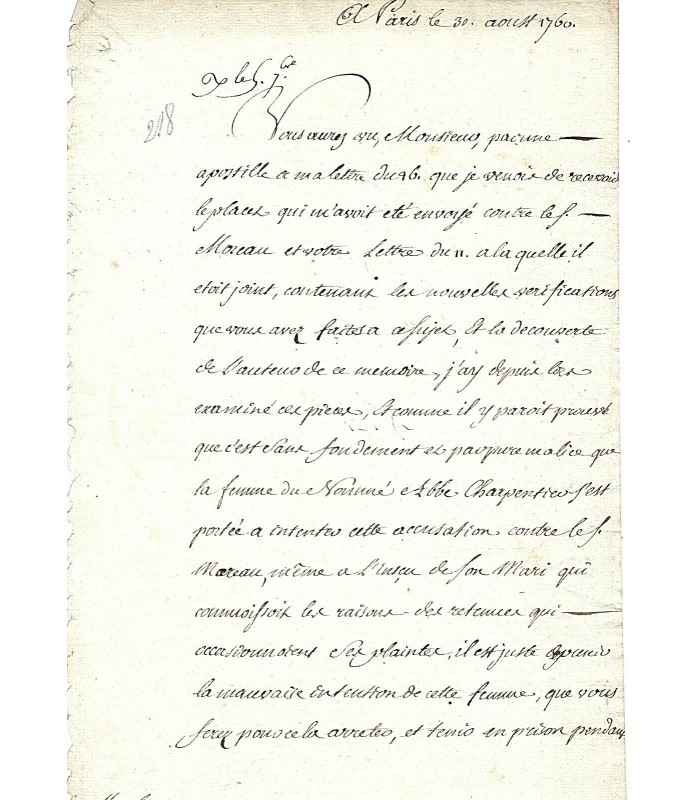 A Paris le 30. aoust 1760.
R le 5. 7.bre
218
Vous aurez vu, Monsieur, par une
apostille a ma lettre du 26. que je venois de recevoir
le placet qui m'avoit eté envoyé contre le S.
Moreau et votre Lettre du 11. a laquelle il
etoit joint, contenant les nouvelles verifications
que vous avez faites a ce sujet, Et la decouverte
de L'auteur de ce memoire, j'ay depuis lors
examiné ces pieces, Et comme il y paroit prouvé
que c'est sans fondement et par pure malice que
la femme du Nommé Abbe Charpentier s'est
portée a intenter cette accusation contre le S.
Moreau, même a L'Insçu de son Mari qui
connoissoit les raisons des retenues qui
occasionnoient Ses plaintes, il est juste de punir
la mauvaise intention de cette femme, que vous
ferez pour cela arreter, et tenir en prison pendant